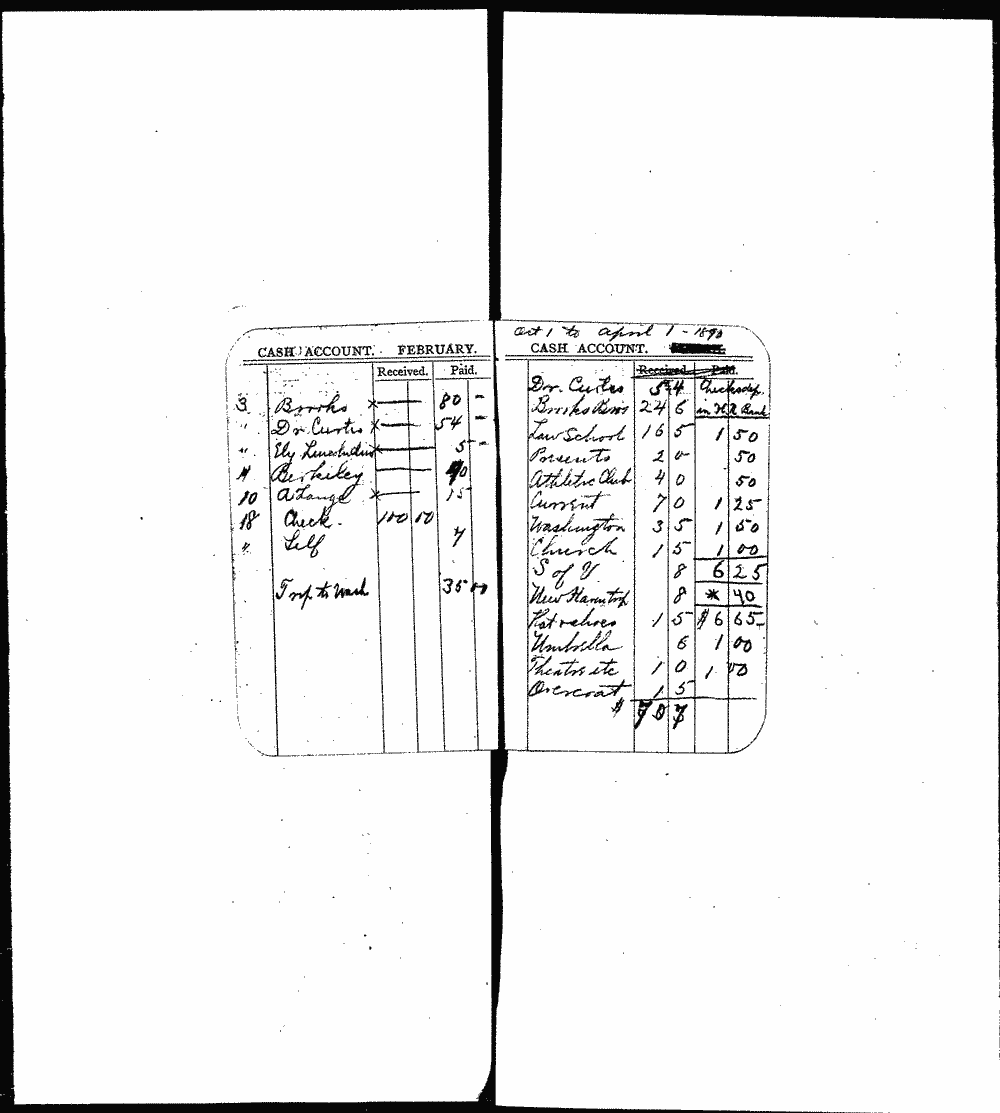 CASH ACCOUNT. FEBRUARY.
Received. Paid.
3 Brooks x — 80 -
" Dr. Curtis x — 54 -
" Ely x — 5 -
4 Berkeley — 40
10 A Lange x — 15
18 Check. 100 00
" Self 7
Trip to Wash 35 00
Oct 1 to April 1 - 1890
CASH ACCOUNT.
Received. Paid.
Dr. Curtis 54 Checks dep.
Brooks Bros 246 in H R Bank
Law School 165 1 50
Presents 20 50
Athletic Club 40 50
Current 70 1 25
Washington 35 1 50
Church 15 1 00
S of Y 8 6 25
New Haven trip 8 * 40
Hat & shoes 15 $6 65
Umbrella 6 1 00
Theatre etc 10 1 00
Overcoat 15
$ 707